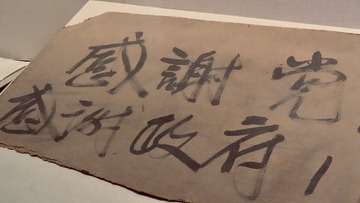 感謝党
感謝政府！